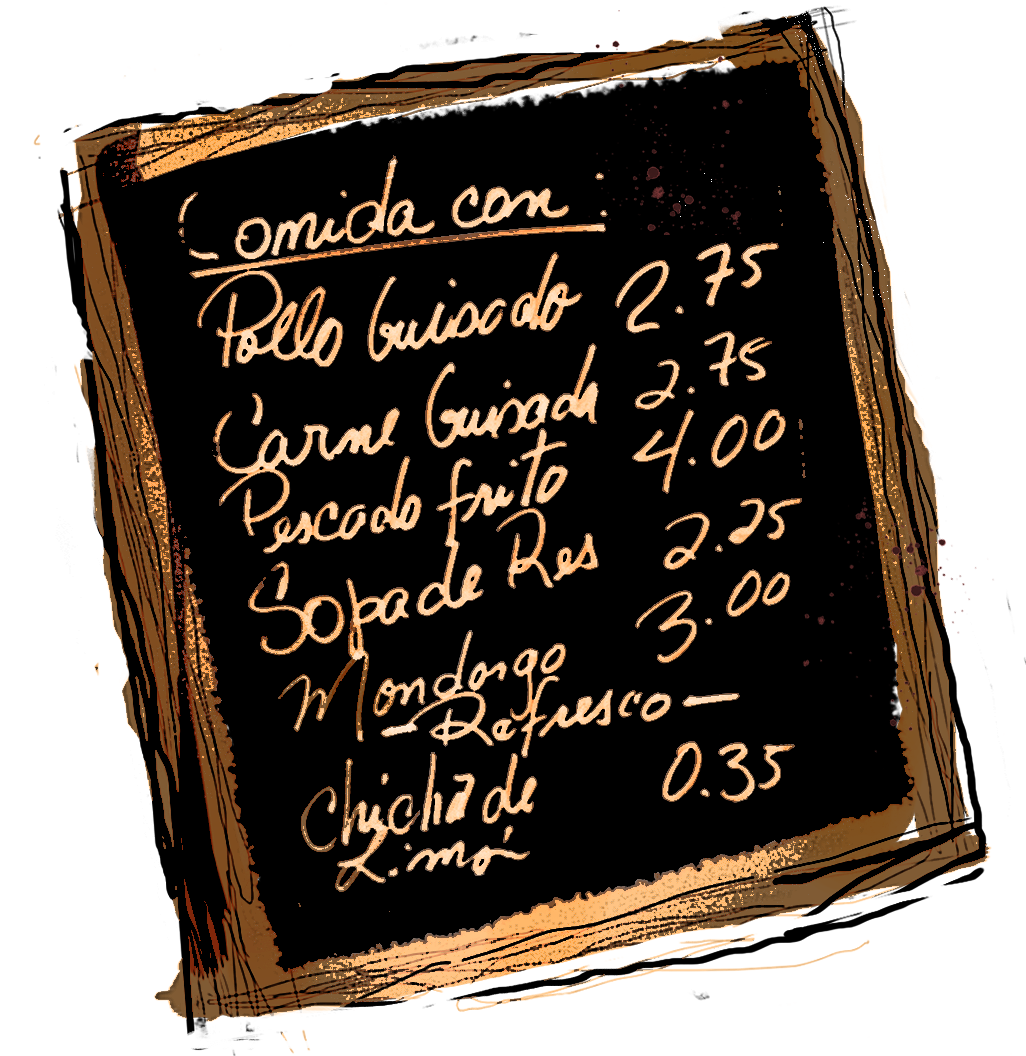 Comida con :
Pollo Guisado 2.75
Carne Guisada 2.75
Pescado frito 4.00
Sopa de Res 2.25
Mondongo 3.00
- Refresco -
Chicha de 0.35
Limón